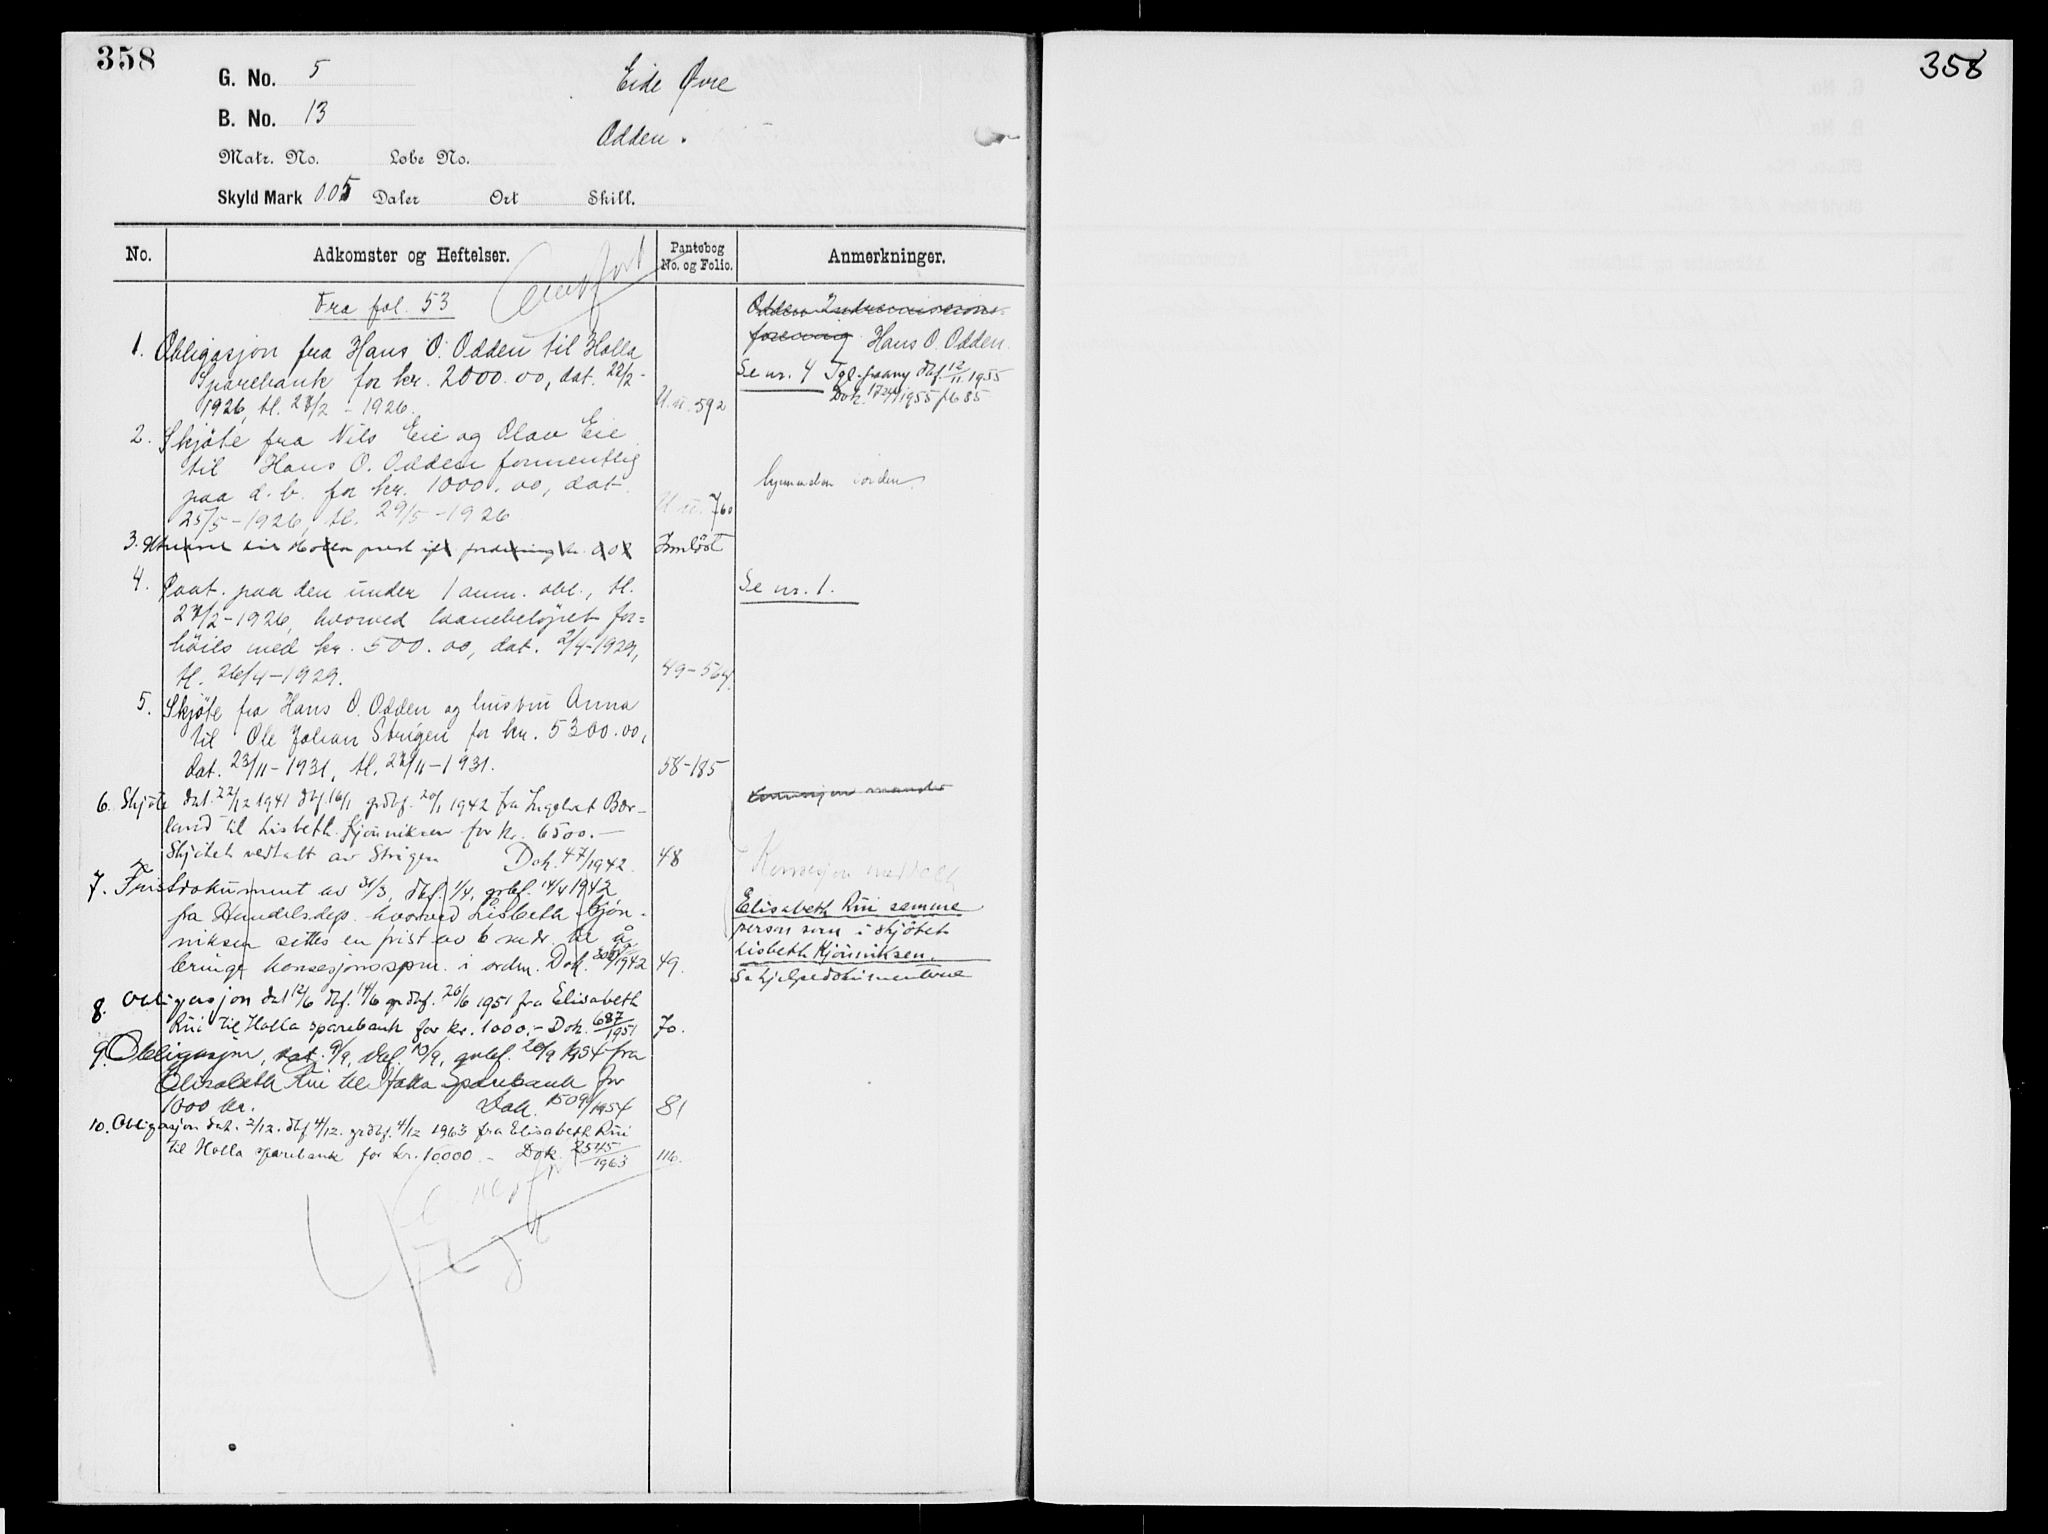 358
G. No. 5
Eide Øvre
B. No. 13
Odden.
Matr. No. Løbe No.
Skyld Mark 0.05 Daler Ort Skill.
No. Adkomster og Heftelser. Pantebog No. og Folio. Anmerkninger.
Overført
Fra fol. 53
1. Obligasjon fra Hans O. Odden til Holla
Sparebank for kr. 2000.00, dat. 22/2-
1926, tl. 27/2 - 1926. 592
2. Skjøte fra Nils Eie og Olav Eie
til Hans O. Odden formentlig
paa d. b. for kr. 1000.00, dat.
25/5-1926, tl. 29/5-1926 760
3. Innløst
4. Paat. paa den under 1 anm. obl., tl.
27/2-1926, hvorved laanebeløpet for=
høies med kr. 500.00, dat. 2/4-1929,
tl. 26/4-1929. 49-564.
5. Skjøte fra Hans O. Odden og hustru Anna
til Ole Johan Strigen for kr. 5300.00,
dat. 23/11-1931, tl. 27/11-1931. 58-185
6. Skjøte dat. 22/12 1941 dbf. 16/1 grdbf. 20/1 1942 fra Ingebret Bor-
land til Lisbeth Kjønniksen for kr. 6500.-
Skjøtet vedtatt av Strigen Dok. 47/1942. 48
7. Fristdokument av 31/3, dbf. 1/4, grbf. 14/4 1942
fra Handelsdep. hvorved Lisbeth Kjøn-
niksen settes en frist av 6 mdr. til å
bringe konsesjonsspm. i orden. Dok. /1942 49.
8. Obligasjon dat 12/6 dbf. 14/6 grdbf. 26/6 1951 fra Elisabeth
Rui til Holla sparebank for kr. 1000.- Dok. 687/1951 70.
9. Obligasjon, dat. 9/9, dbf. 10/9, grbf. 20/9 1954 fra
Elisabeth Rui til Holla Sparebank for
1000 kr. Dok. 1509/1954 81
10. Obligasjon dat. 2/12. dbf 4/12. grdbf. 4/12 1963 fra Elisabeth Rui
til Holla sparebank for kr. 10000.- Dok. 2545/1963 116.
Odden Indremisjons-
forening Hans O. Odden.
Se nr. 4 Tgl. paany dbf. 12/11 1955
Dok. 1955
hjemmelen i orden.
Se nr. 1.
Konsesjon mangler
Konsesjon meddelt
Elisabeth Rui samme
person som i skjøtet
Lisbeth Kjønniksen.
Se hjelpedokumentene
358